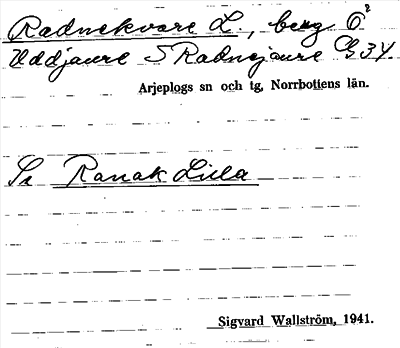 Radnekvare L., berg Ö²
Uddjaure S Radnejaure G34.
Arjeplogs sn och tg, Norrbottens län.
Se Ranak Lilla
Sigvard Wallström, 1941.